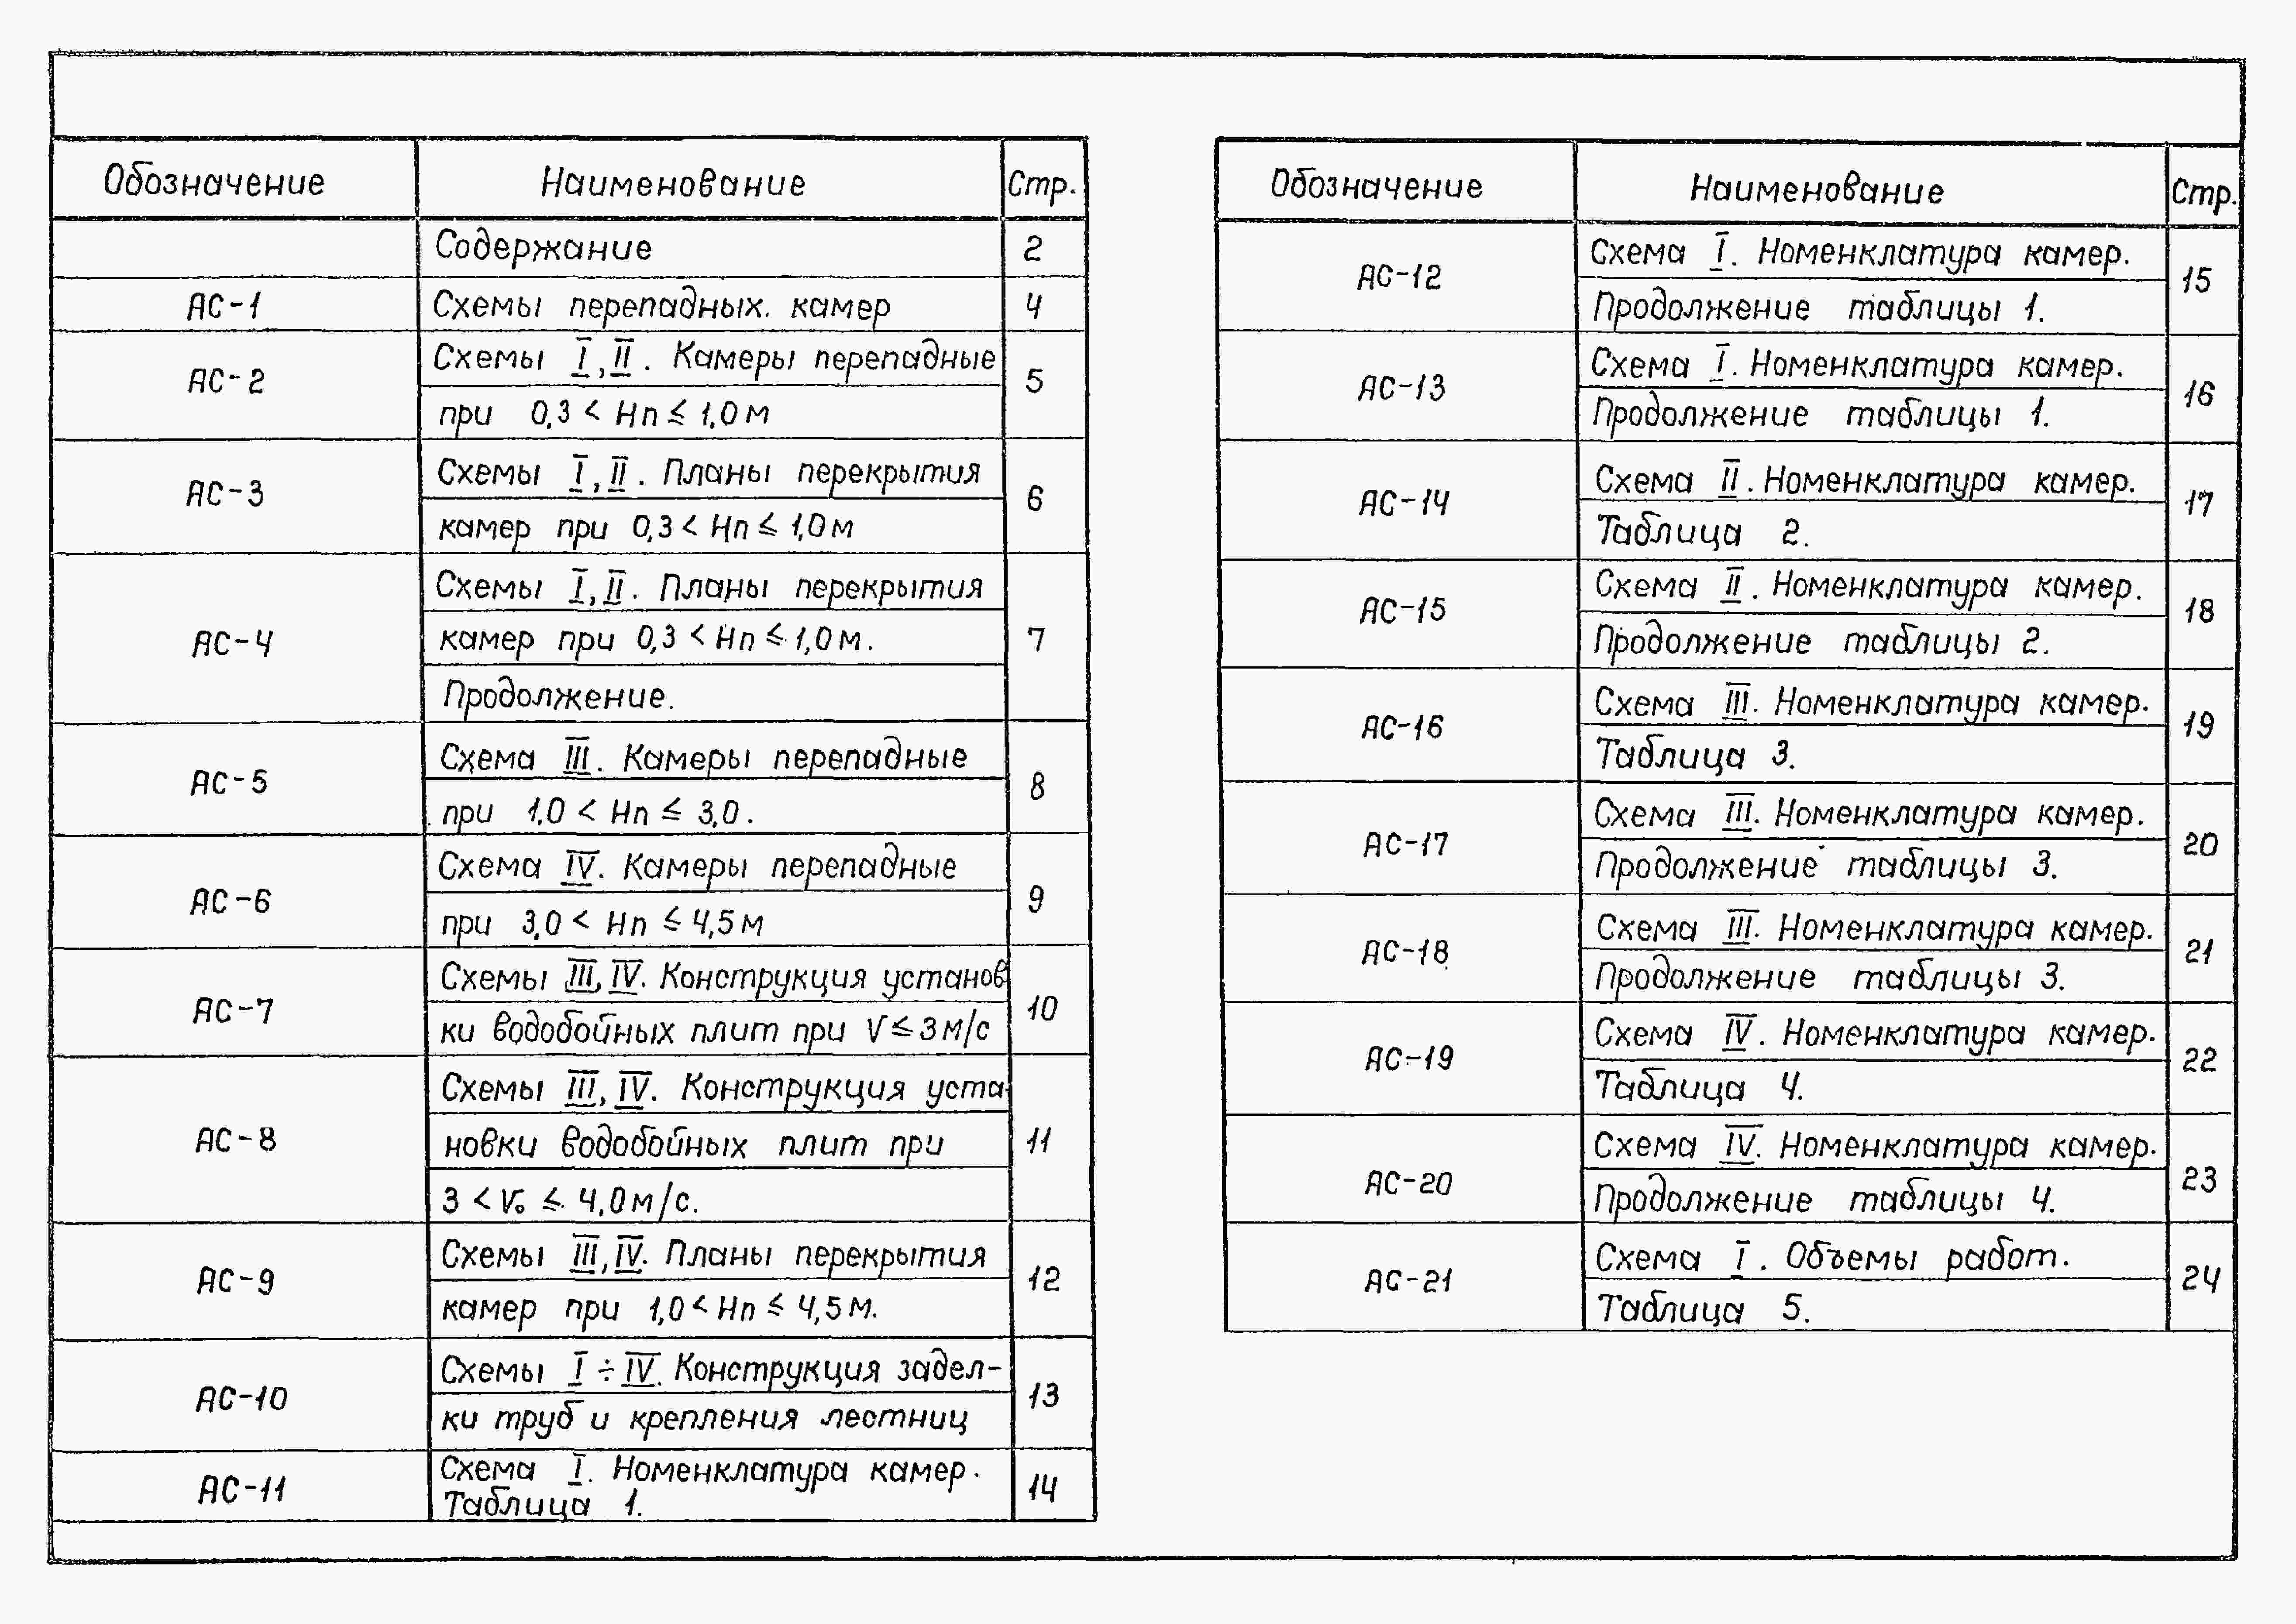 Обозначение Наименование Стр.
Содержание 2
АС-1 Схемы перепадных. камер 4
АС-2 Схемы I, II. Камеры перепадные 5
при 0,3 < Нп ≤ 1,0 м
АС-3 Схемы I, II. Планы перекрытия 6
камер при 0,3 < Нп ≤ 1,0 м
АС-4 Схемы I, II. Планы перекрытия 7
камер при 0,3 < Нп ≤ 1,0 м.
Продолжение.
АС-5 Схема III. Камеры перепадные 8
при 1,0 < Нп ≤ 3,0.
АС-6 Схема IV. Камеры перепадные 9
при 3,0 < Нп ≤ 4,5 м
АС-7 Схемы III, IV. Конструкция установ 10
ки водобойных плит при V ≤ 3 м/с
АС-8 Схемы III, IV. Конструкция уста- 11
новки водобойных плит при
3 < V₀ ≤ 4,0 м/с.
АС-9 Схемы III, IV. Планы перекрытия 12
камер при 1,0 < Нп ≤ 4,5 м.
АС-10 Схемы I ÷ IV. Конструкция задел- 13
ки труб и крепления лестниц
АС-11 Схема I. Номенклатура камер. 14
Таблица 1.
Обозначение Наименование Стр.
АС-12 Схема I. Номенклатура камер. 15
Продолжение таблицы 1.
АС-13 Схема I. Номенклатура камер. 16
Продолжение таблицы 1.
АС-14 Схема II. Номенклатура камер. 17
Таблица 2.
АС-15 Схема II. Номенклатура камер. 18
Продолжение таблицы 2.
АС-16 Схема III. Номенклатура камер. 19
Таблица 3.
АС-17 Схема III. Номенклатура камер. 20
Продолжение таблицы 3.
АС-18 Схема III. Номенклатура камер. 21
Продолжение таблицы 3.
АС-19 Схема IV. Номенклатура камер. 22
Таблица 4.
АС-20 Схема IV. Номенклатура камер. 23
Продолжение таблицы 4.
АС-21 Схема I. Объемы работ. 24
Таблица 5.